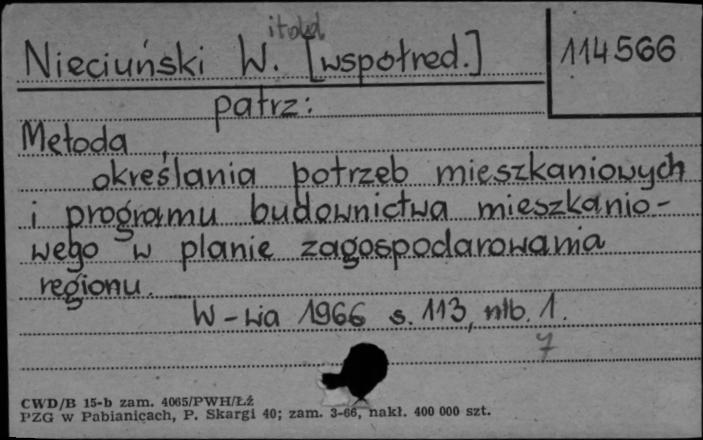 itold
Nieciuński W. [współred.] 114566
patrz:
Metoda
określania potrzeb mieszkaniowych
i programu budownictwa mieszkanio-
wego w planie zagospodarowania
regionu.
W-wa 1966 s. 113, nlb. 1.
7
CWD/B 15-b zam. 4065/PWH/Łź
PZG w Pabianicach, P. Skargi 40; zam. 3-66, nakł. 400 000 szt.